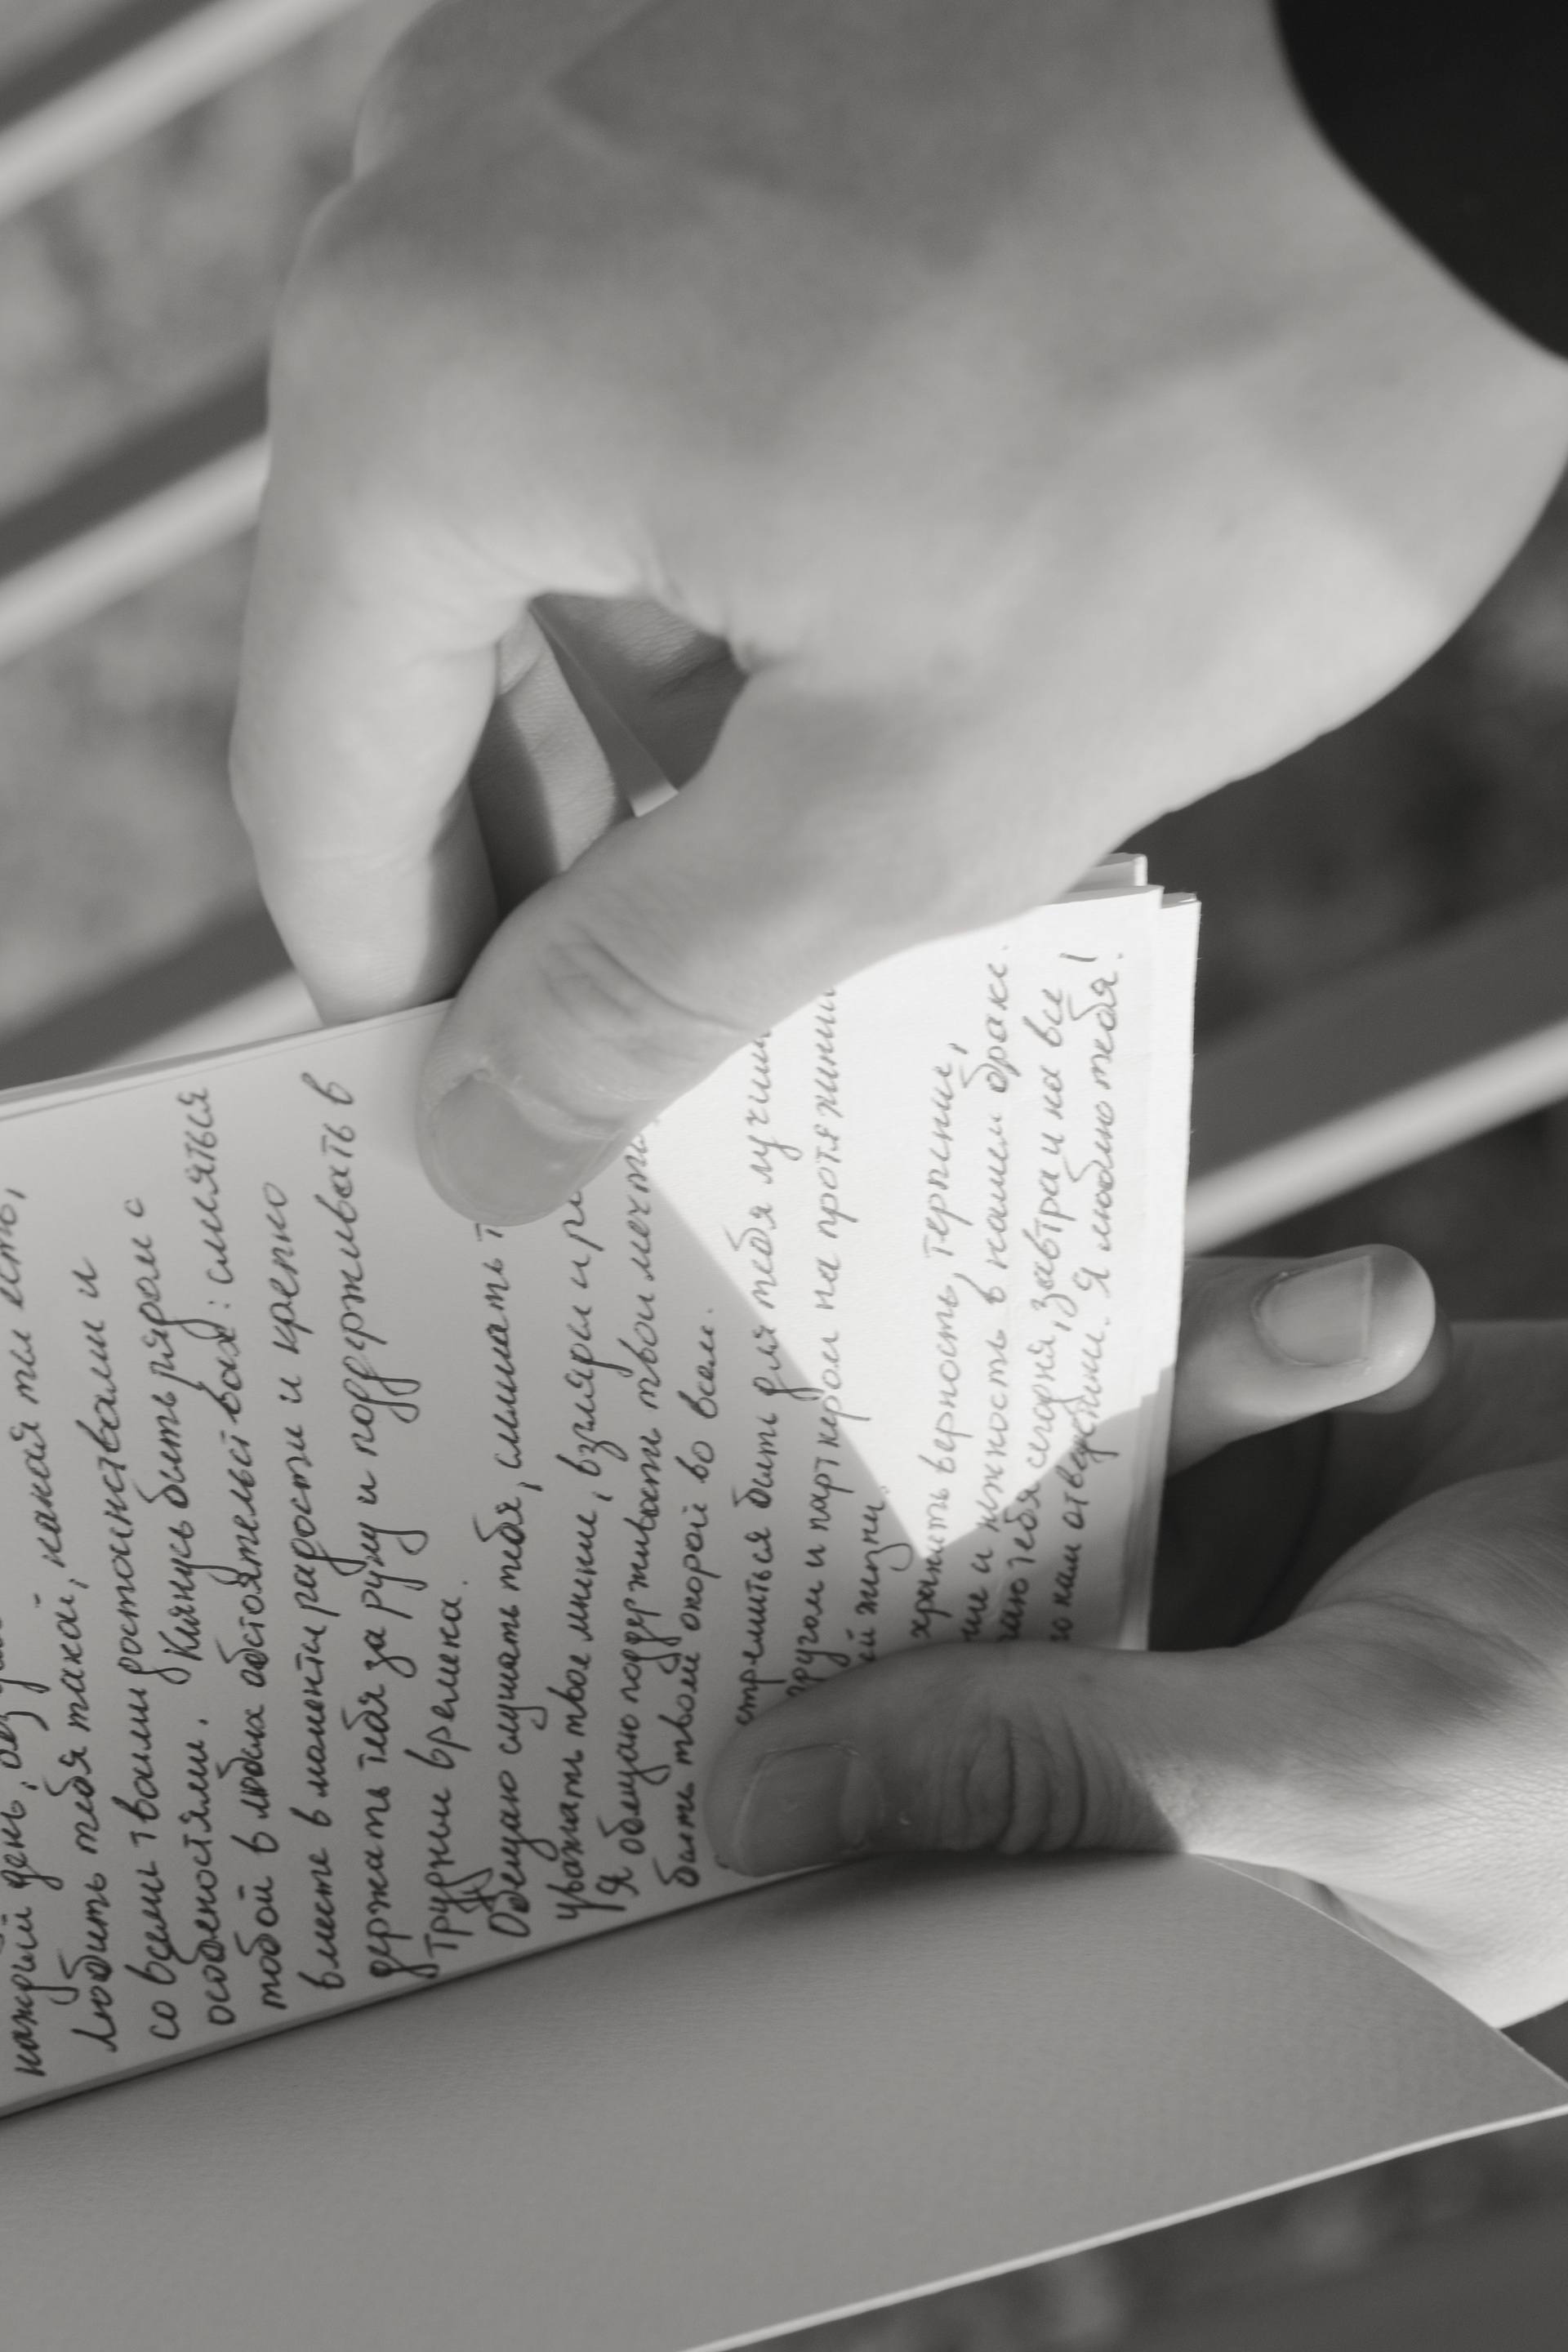 каждый день,
Любить тебя такой, какая ты есть,
со всеми твоими достоинствами и
особенностями. Клянусь быть рядом с
тобой в любых обстоятельствах: смеяться
вместе в моменты радости и крепко
держать тебя за руку и поддерживать в
трудные времена.
Обещаю слушать тебя, слышать
уважать твое мнение, взгляды и
Я обещаю поддерживать твои мечты
быть твоей опорой во всем.
стремиться быть для тебя лучшим
другом и партнером на протяжении
ей жизни.
хранить верность, терпение,
ние и нежность в нашем браке.
тебя сегодня, завтра и на все
нам отведены. Я люблю тебя!